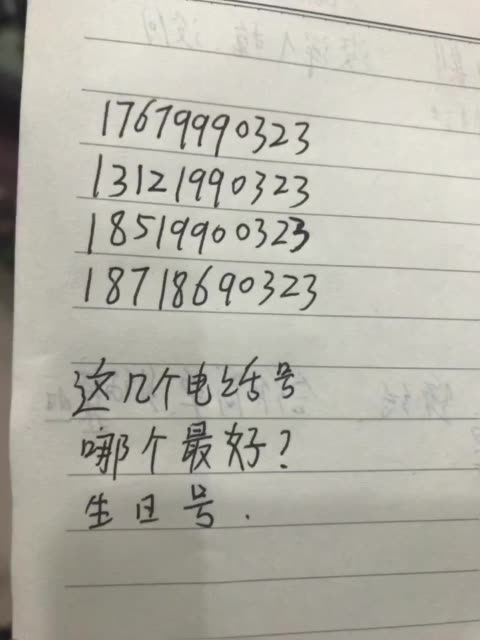 17679990323
13121990323
18519900323
18718690323
这几个电话号
哪个最好?
生日号.